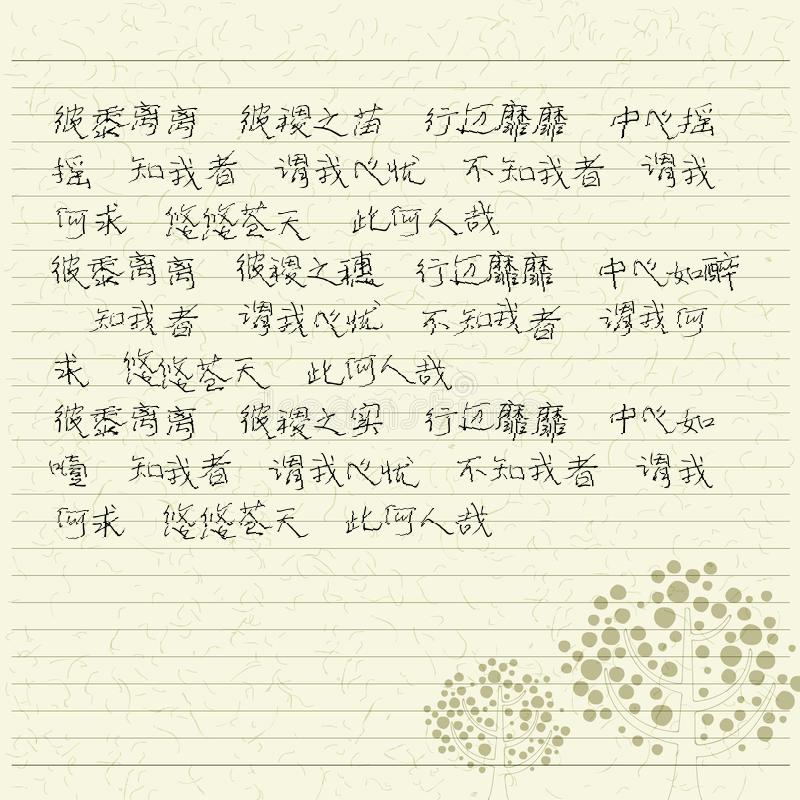 彼黍离离 彼稷之苗 行迈靡靡 中心摇
摇 知我者 谓我心忧 不知我者 谓我
何求 悠悠苍天 此何人哉
彼黍离离 彼稷之穗 行迈靡靡 中心如醉
知我者 谓我心忧 不知我者 谓我何
求 悠悠苍天 此何人哉
彼黍离离 彼稷之实 行迈靡靡 中心如
噎 知我者 谓我心忧 不知我者 谓我
何求 悠悠苍天 此何人哉